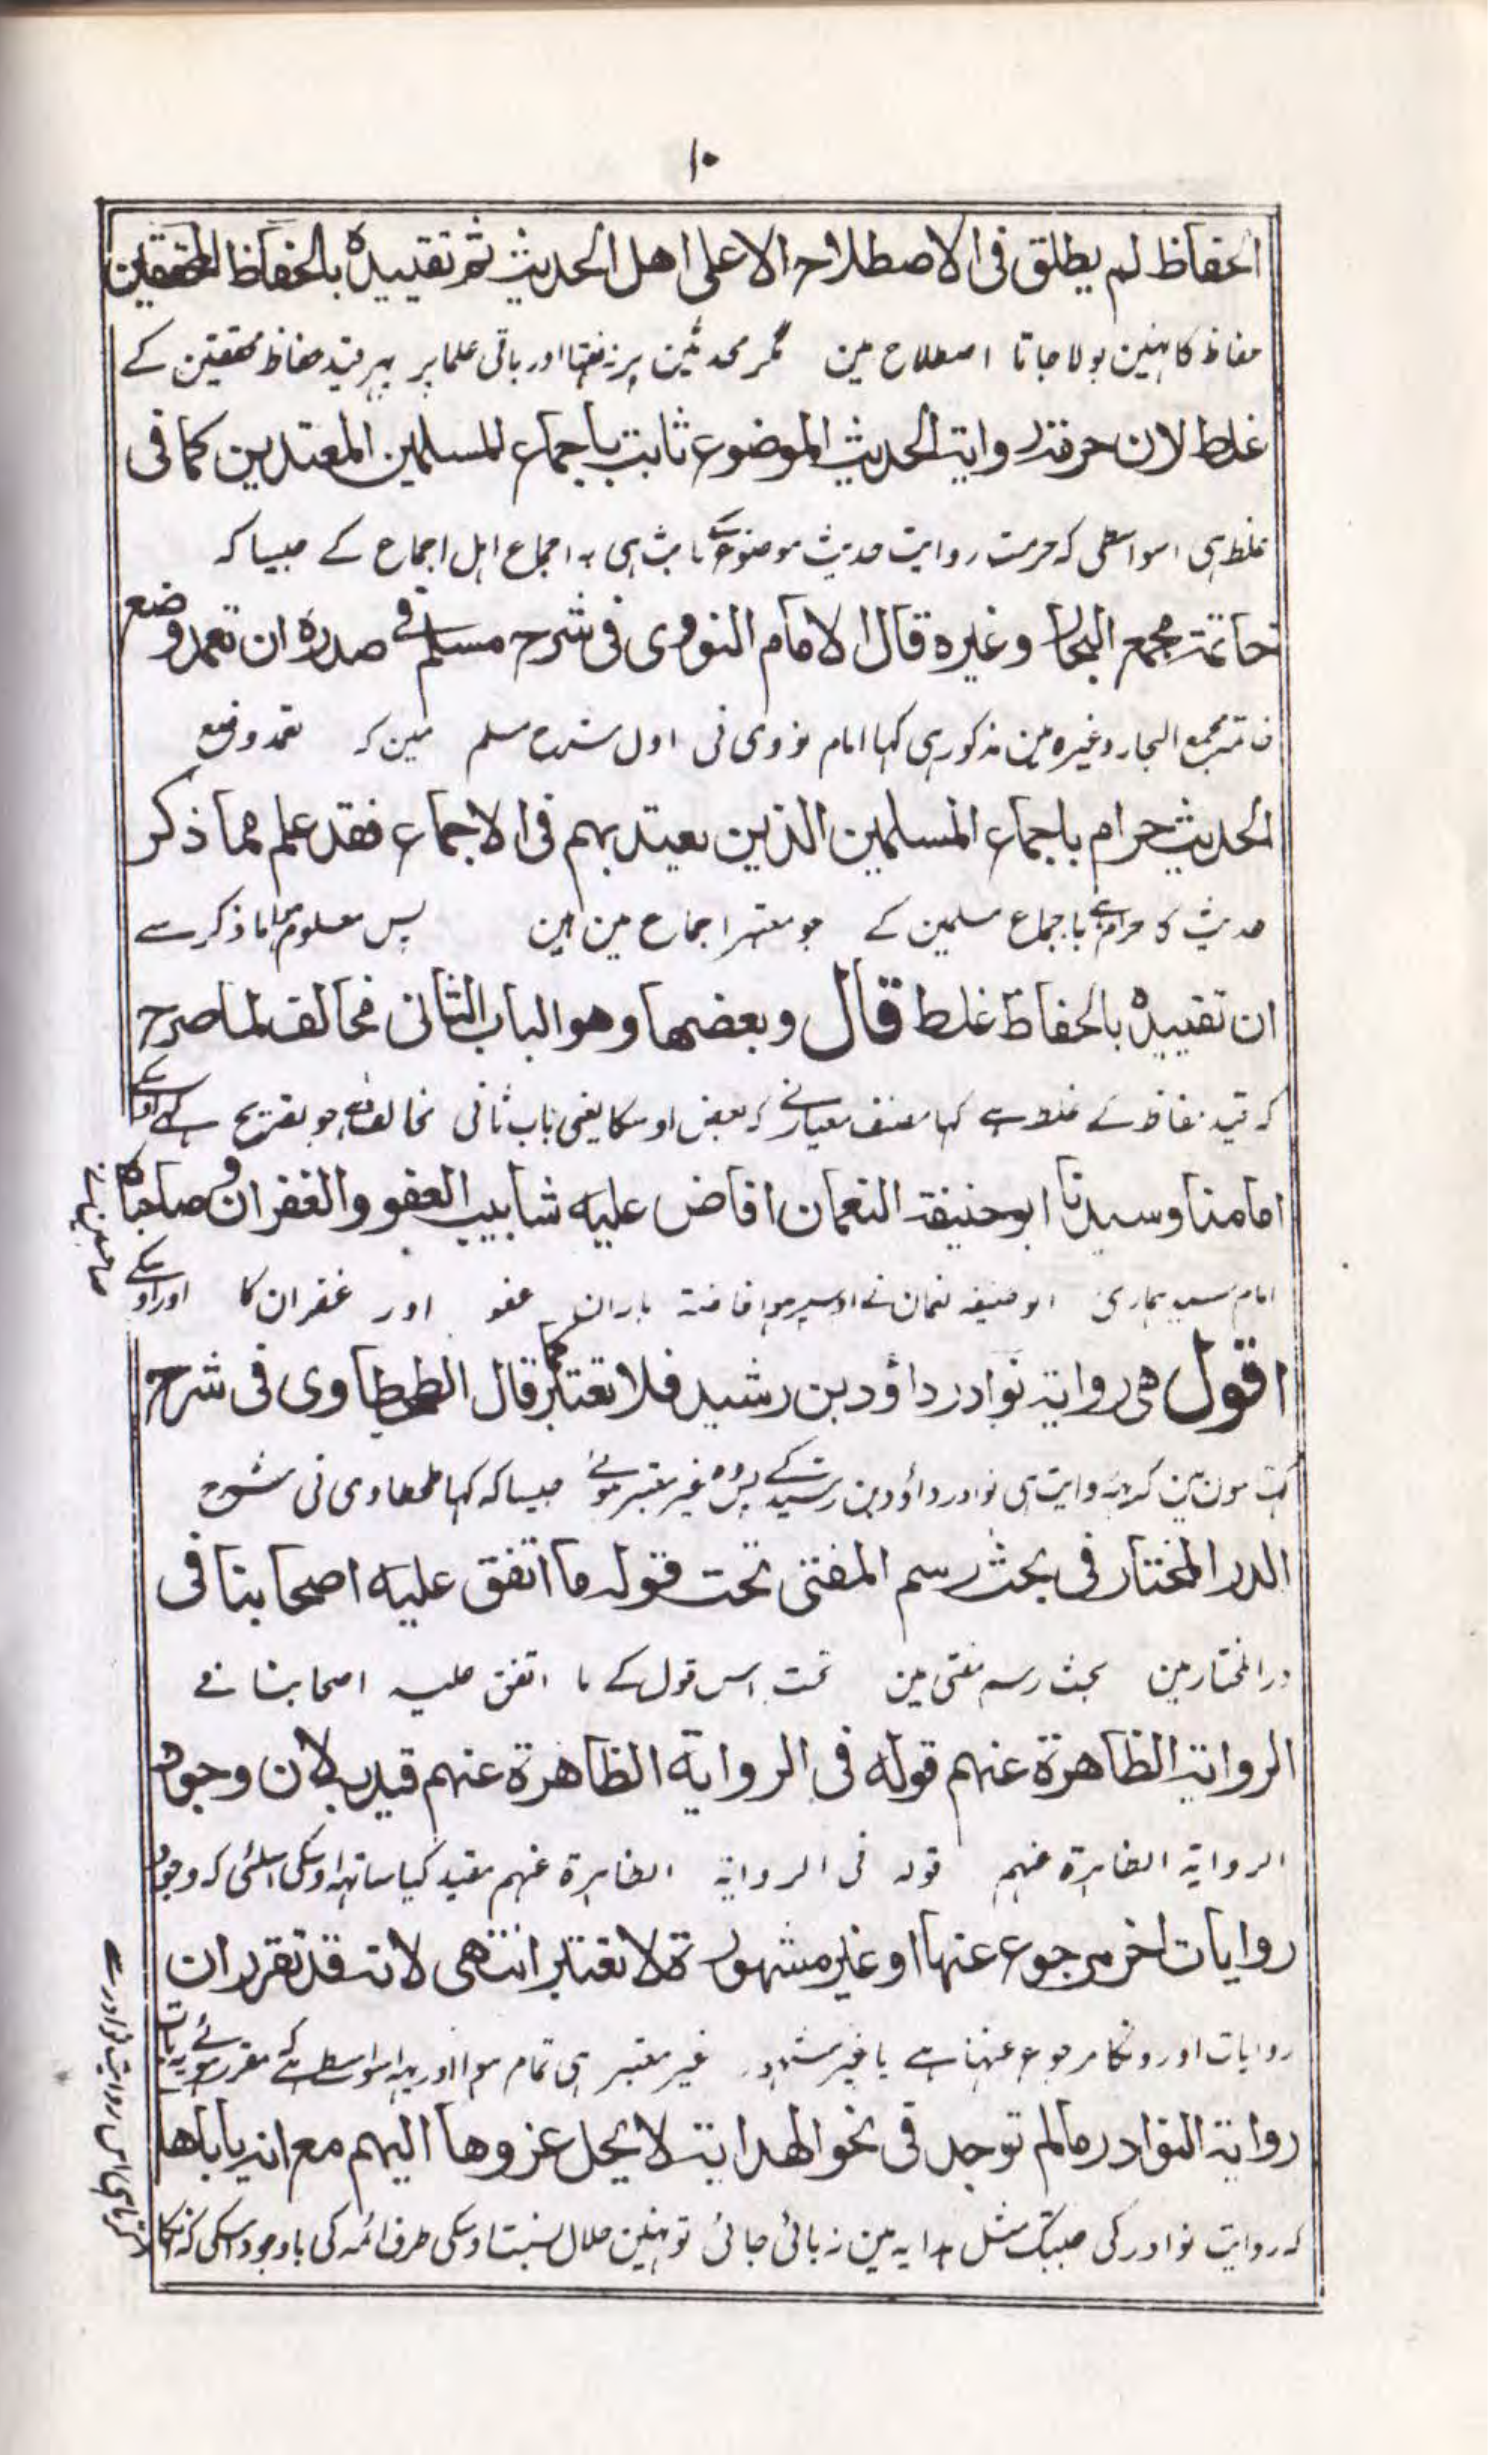 ۱۰
الحفاظ لم يطلق فى الاصطلاح الا على اهل الحديث ثم تقييده بالحفاظ المحققين
حفاظ کا نہین بولا جاتا اصطلاح مین مگر محدثین پر نہ فقہا اور باقی علما پر پہر قید حفاظ محققین کے
غلط لان حرمة رواية الحديث الموضوع ثابت باجماع المسلمين المعتدين كما فى
غلط ہی اسواسطی کہ حرمت روایت حدیث موضوع کے ثابت ہی بہ اجماع اہل اجماع کے جیسا کہ
خاتمة مجمع البحار وغيره قال الامام النووى فى شرح مسلم فى صدره ان تعمد وضع
خاتمہ مجمع البحار وغیرہ مین مذکور ہی کہا امام نووی نی اول شرح مسلم مین کہ تعمد وضع
الحديث حرام باجماع المسلمين الذين يعتد بهم فى الاجماع فقد علم مما ذكر
حدیث کا حرام ہے باجماع مسلمین کے جو معتبر اجماع مین ہین پس معلوم ہوا ما ذکر سے
ان تقييده بالحفاظ غلط قال وبعضها وهو الباب الثانى مخالف لما صرح
کہ قید حفاظ کے غلط ہے کہا مصنف معیار نے کہ بعض اوسکا یعنی باب ثانی مخالف ہے جو تصریح کے
امامنا وسيدنا ابو حنيفة النعمان افاض عليه شابيب العفو والغفران وصاحباه
امام سید ہماری ابو حنیفہ نعمان نے اوسپر ہو افاضتہ باران عفو اور غفران کا اور اوسکے
صاحبین نے
اقول هى رواية نوادر داؤد بن رشيد فلا تعتبر كما قال الطحطاوى فى شرح
کہتا ہون مین کہ یہ روایت ہی نوادر داؤد بن رشید کے پس وہ غیر معتبر ہوئے جیسا کہ کہا طحطاوی نی شرح
الدر المختار فى بحث رسم المفتى تحت قوله ما اتفق عليه اصحابنا فى
در المختار مین بحث رسم مفتی مین تحت اس قول کے ما اتفق علیہ اصحابنا فے
الرواية الظاهرة عنهم قوله فى الرواية الظاهرة عنهم قيد به لان وجود
الروایۃ الظاہرۃ عنہم قولہ فی الروایۃ الظاہرۃ عنہم مقید کیا ساتہہ اوسکی اسلئی کہ وجود
روايات اخر مرجوع عنها او غير مشهورة لا تعتبر انتهى لانه قد تقرر ان
روایات اورونکا مرجوع عنہا ہے یا غیر مشہور غیر معتبر ہی تمام ہوا اور یہہ اسواسطے ہے کہ مقرر ہوئے یہ بات
رواية النوادر ما لم توجد فى نحو الهداية لا يحل عزوها اليهم مع انه ياباها
کہ روایت نوادر کی جبتک مثل ہدایہ مین نہ پائی جائی تو نہین حلال نسبت اوسکی طرف ائمہ کی باوجود اسکی کہ انکار
کرتا ہی اس روایت نوادر سے